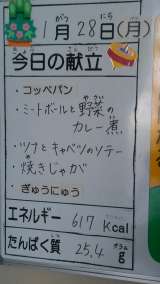 1月28日(月)
今日の献立
・コッペパン
・ミートボールと野菜の
カレー煮
・ツナとキャベツのソテー
・焼きじゃが
・ぎゅうにゅう
エネルギー 617 Kcal
たんぱく質 25.4 g